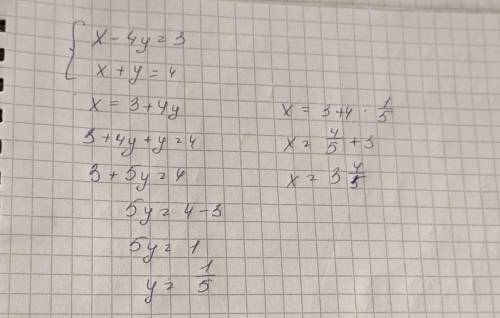 x - 4y = 3
x + y = 4
x = 3 + 4y
3 + 4y + y = 4
3 + 5y = 4
5y = 4 - 3
5y = 1
y = 1/5
x = 3 + 4 · 1/5
x = 4/5 + 3
x = 3 4/5